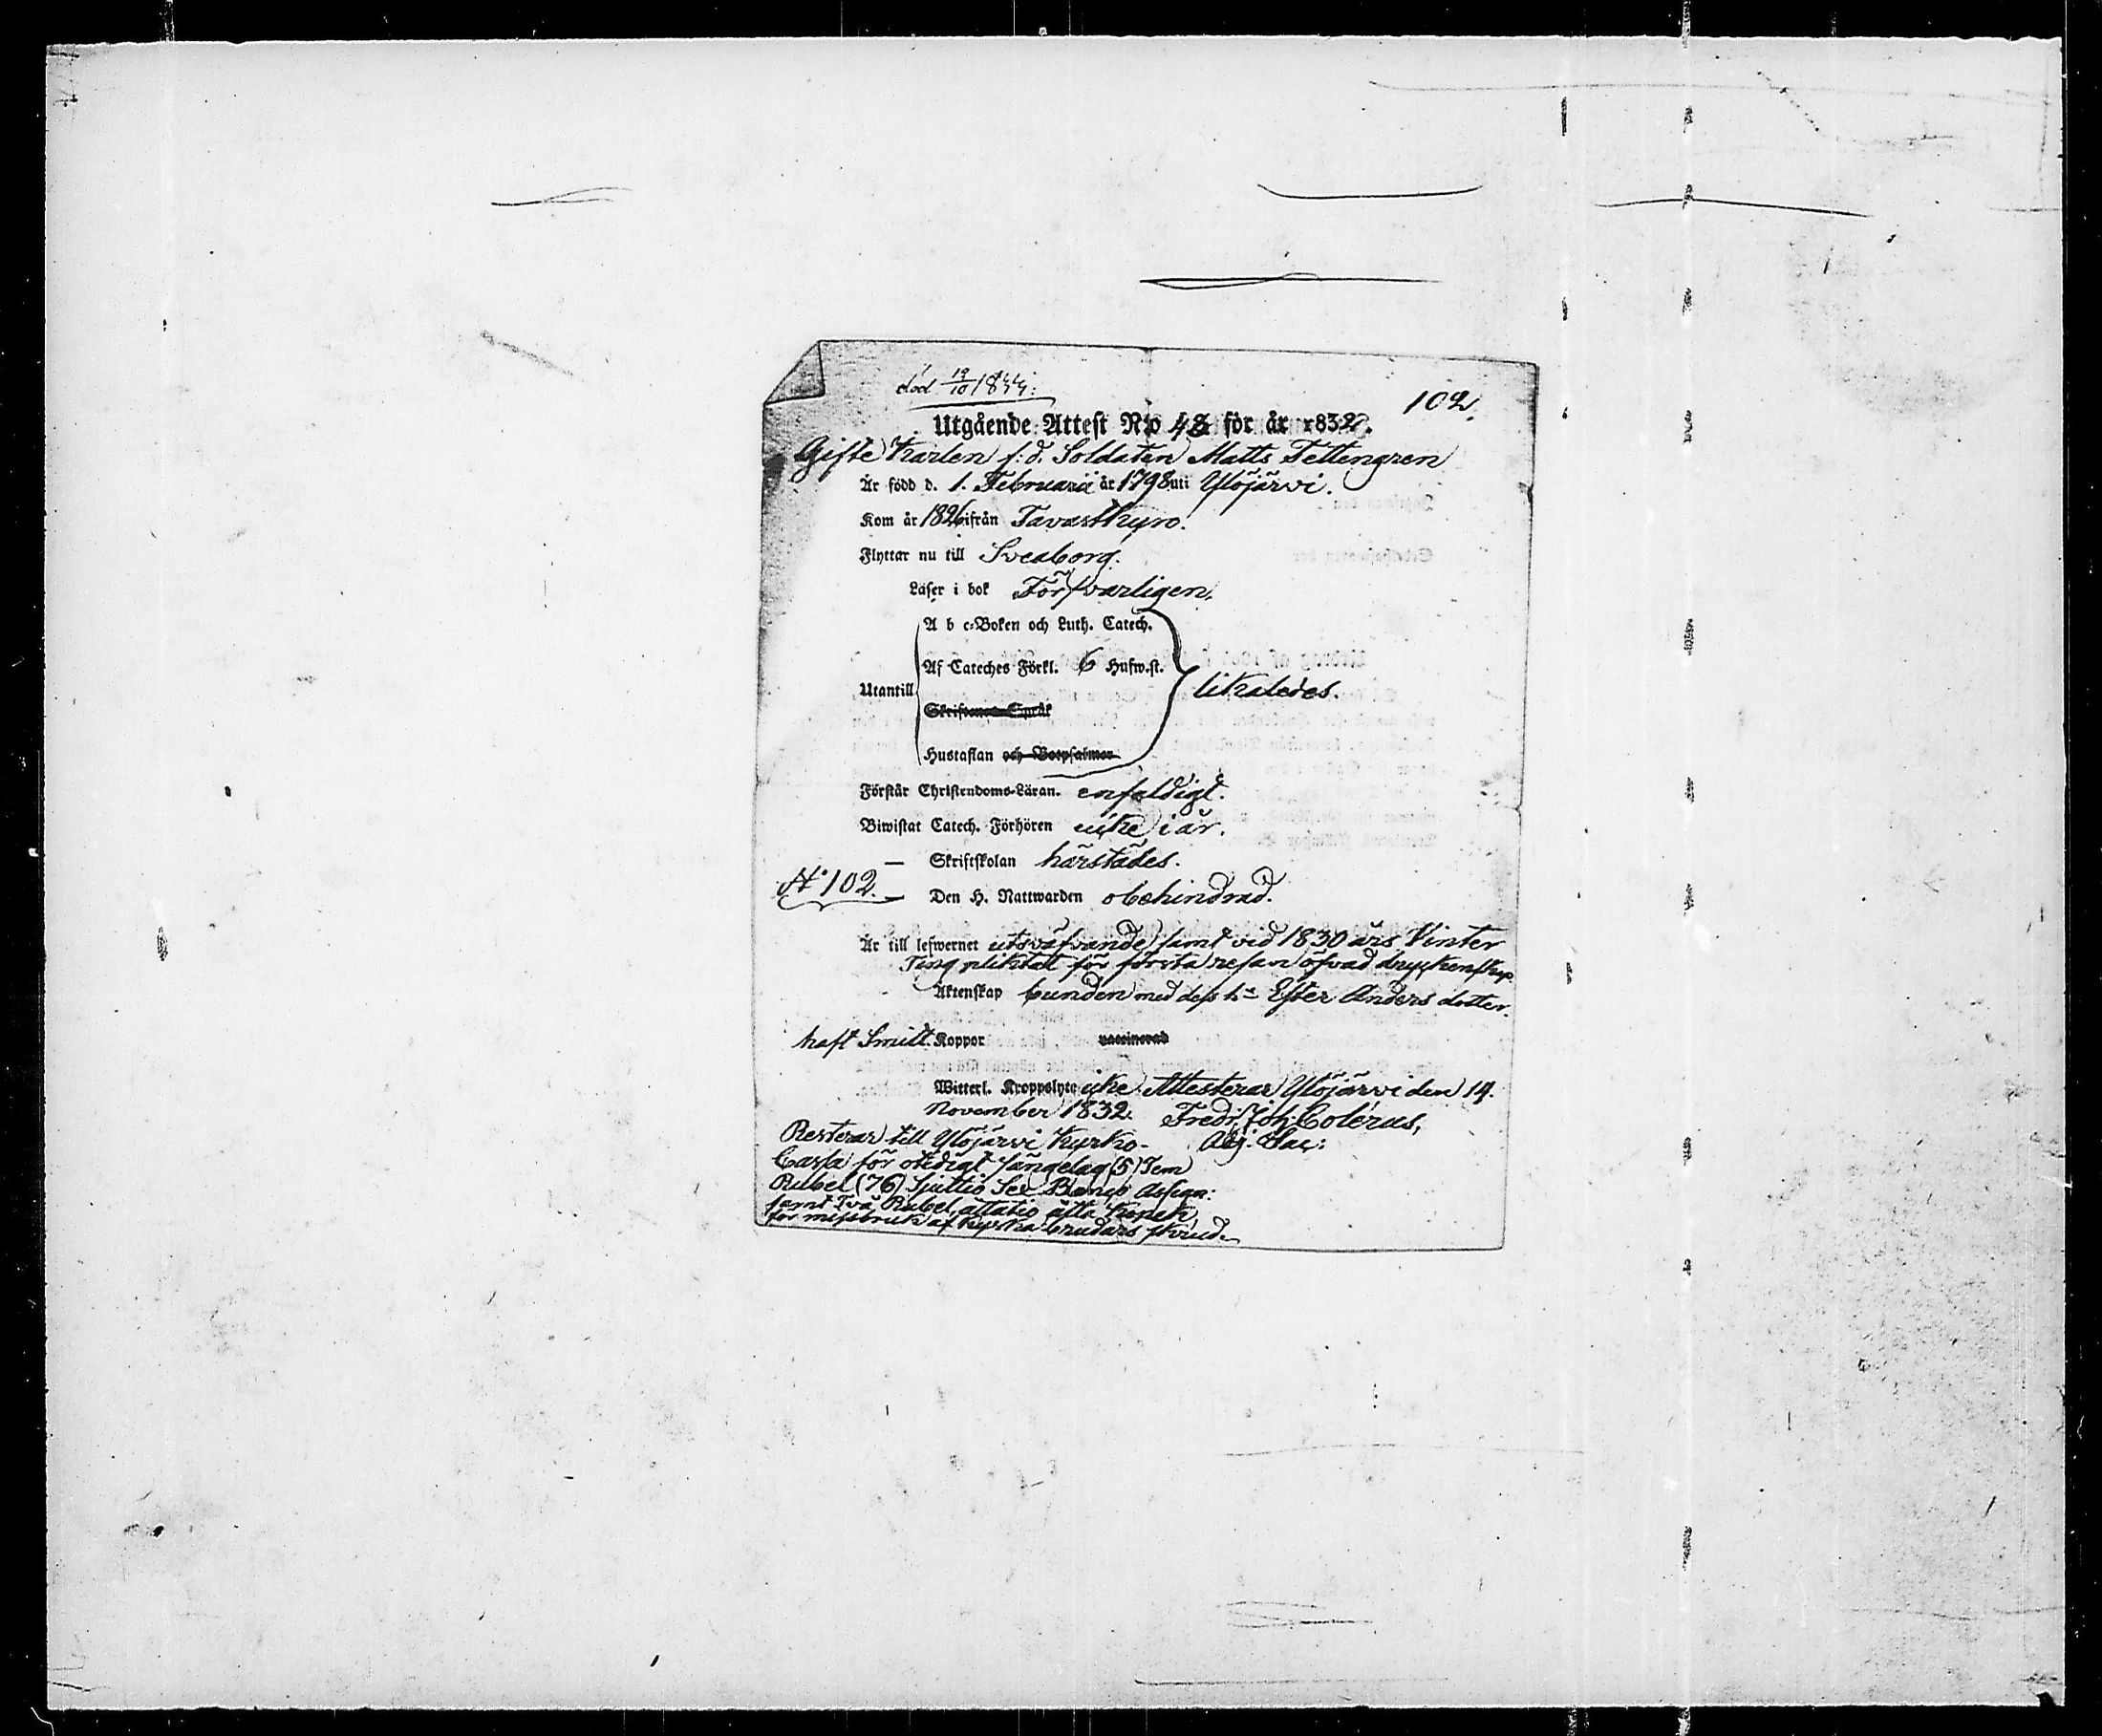 död 19/10 1844:
102.
Utgående Attest N:o 43 för år 1832.
Gifte Karlen f:d. Soldaten Matts Tettengren
Är född d. 1. Februarii år 1798 uti Ylöjärvi.
Kom år 1826 ifrån Tavastkyro.
Flyttar nu till Sveaborg.
Läser i bok Försvarligen,
A b c-Boken och Luth. Catech.
Af Cateches Förkl. 6 Hufw.st.
Utantill likaledes.
Skriftenes Språk
Hustaflan och Botpsalmer
Förstår Christendoms-Läran. enfaldigt.
Biwistat Catech. Förhören icke i år.
— Skriftskolan härstädes.
N:o 102. — Den H. Nattwarden obehindrad.
Är till lefwernet utsväfvande samt vid 1830 års Vinter
Ting pliktat för första resan öfvad dryckenskap
Äktenskap bunden med dess h:u Ester Anders dotter.
haft Smitt. Koppor vaccinerad
Witterl. Kroppslyte icke. Attesterar Ylöjärvi den 14.
November 1832. Fredr. Joh. Colérus,
Adj. Sac:
Resterar till Ylöjärvi Kyrko-
Cassa för oledigt sängelag (5) Fem
Rubel (76) Sjuttio Sex Banco Assign:
samt Två Rubel, åttatio åtta Kopek
för missbruk af kyrka brudars skrud.